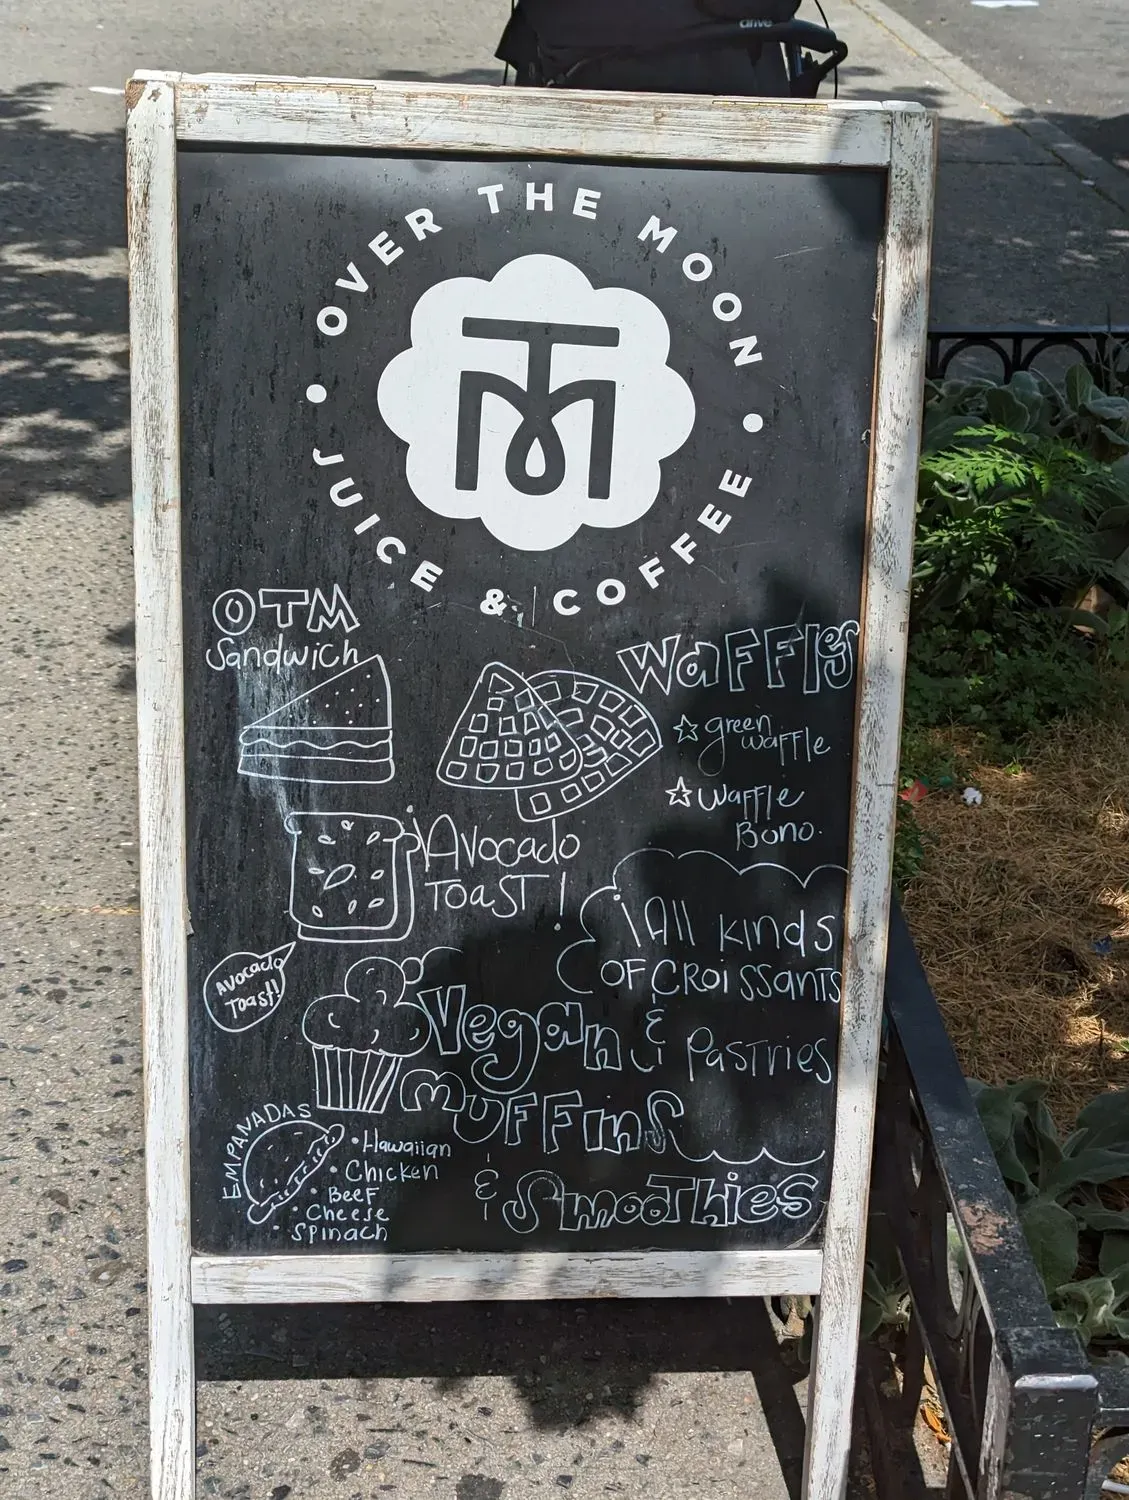 drive
OVER THE MOON
OTM
JUICE & COFFEE
OTM
Sandwich
WaFFles
green
waffle
waffle
Bono.
Avocado
Toast!
All kinds
OF Croissants
& Pastries
Avocado
Toast!!
Vegan
muFFins
EMPANADAS
Hawaiian
Chicken
BeeF
Cheese
Spinach
& SmooThies